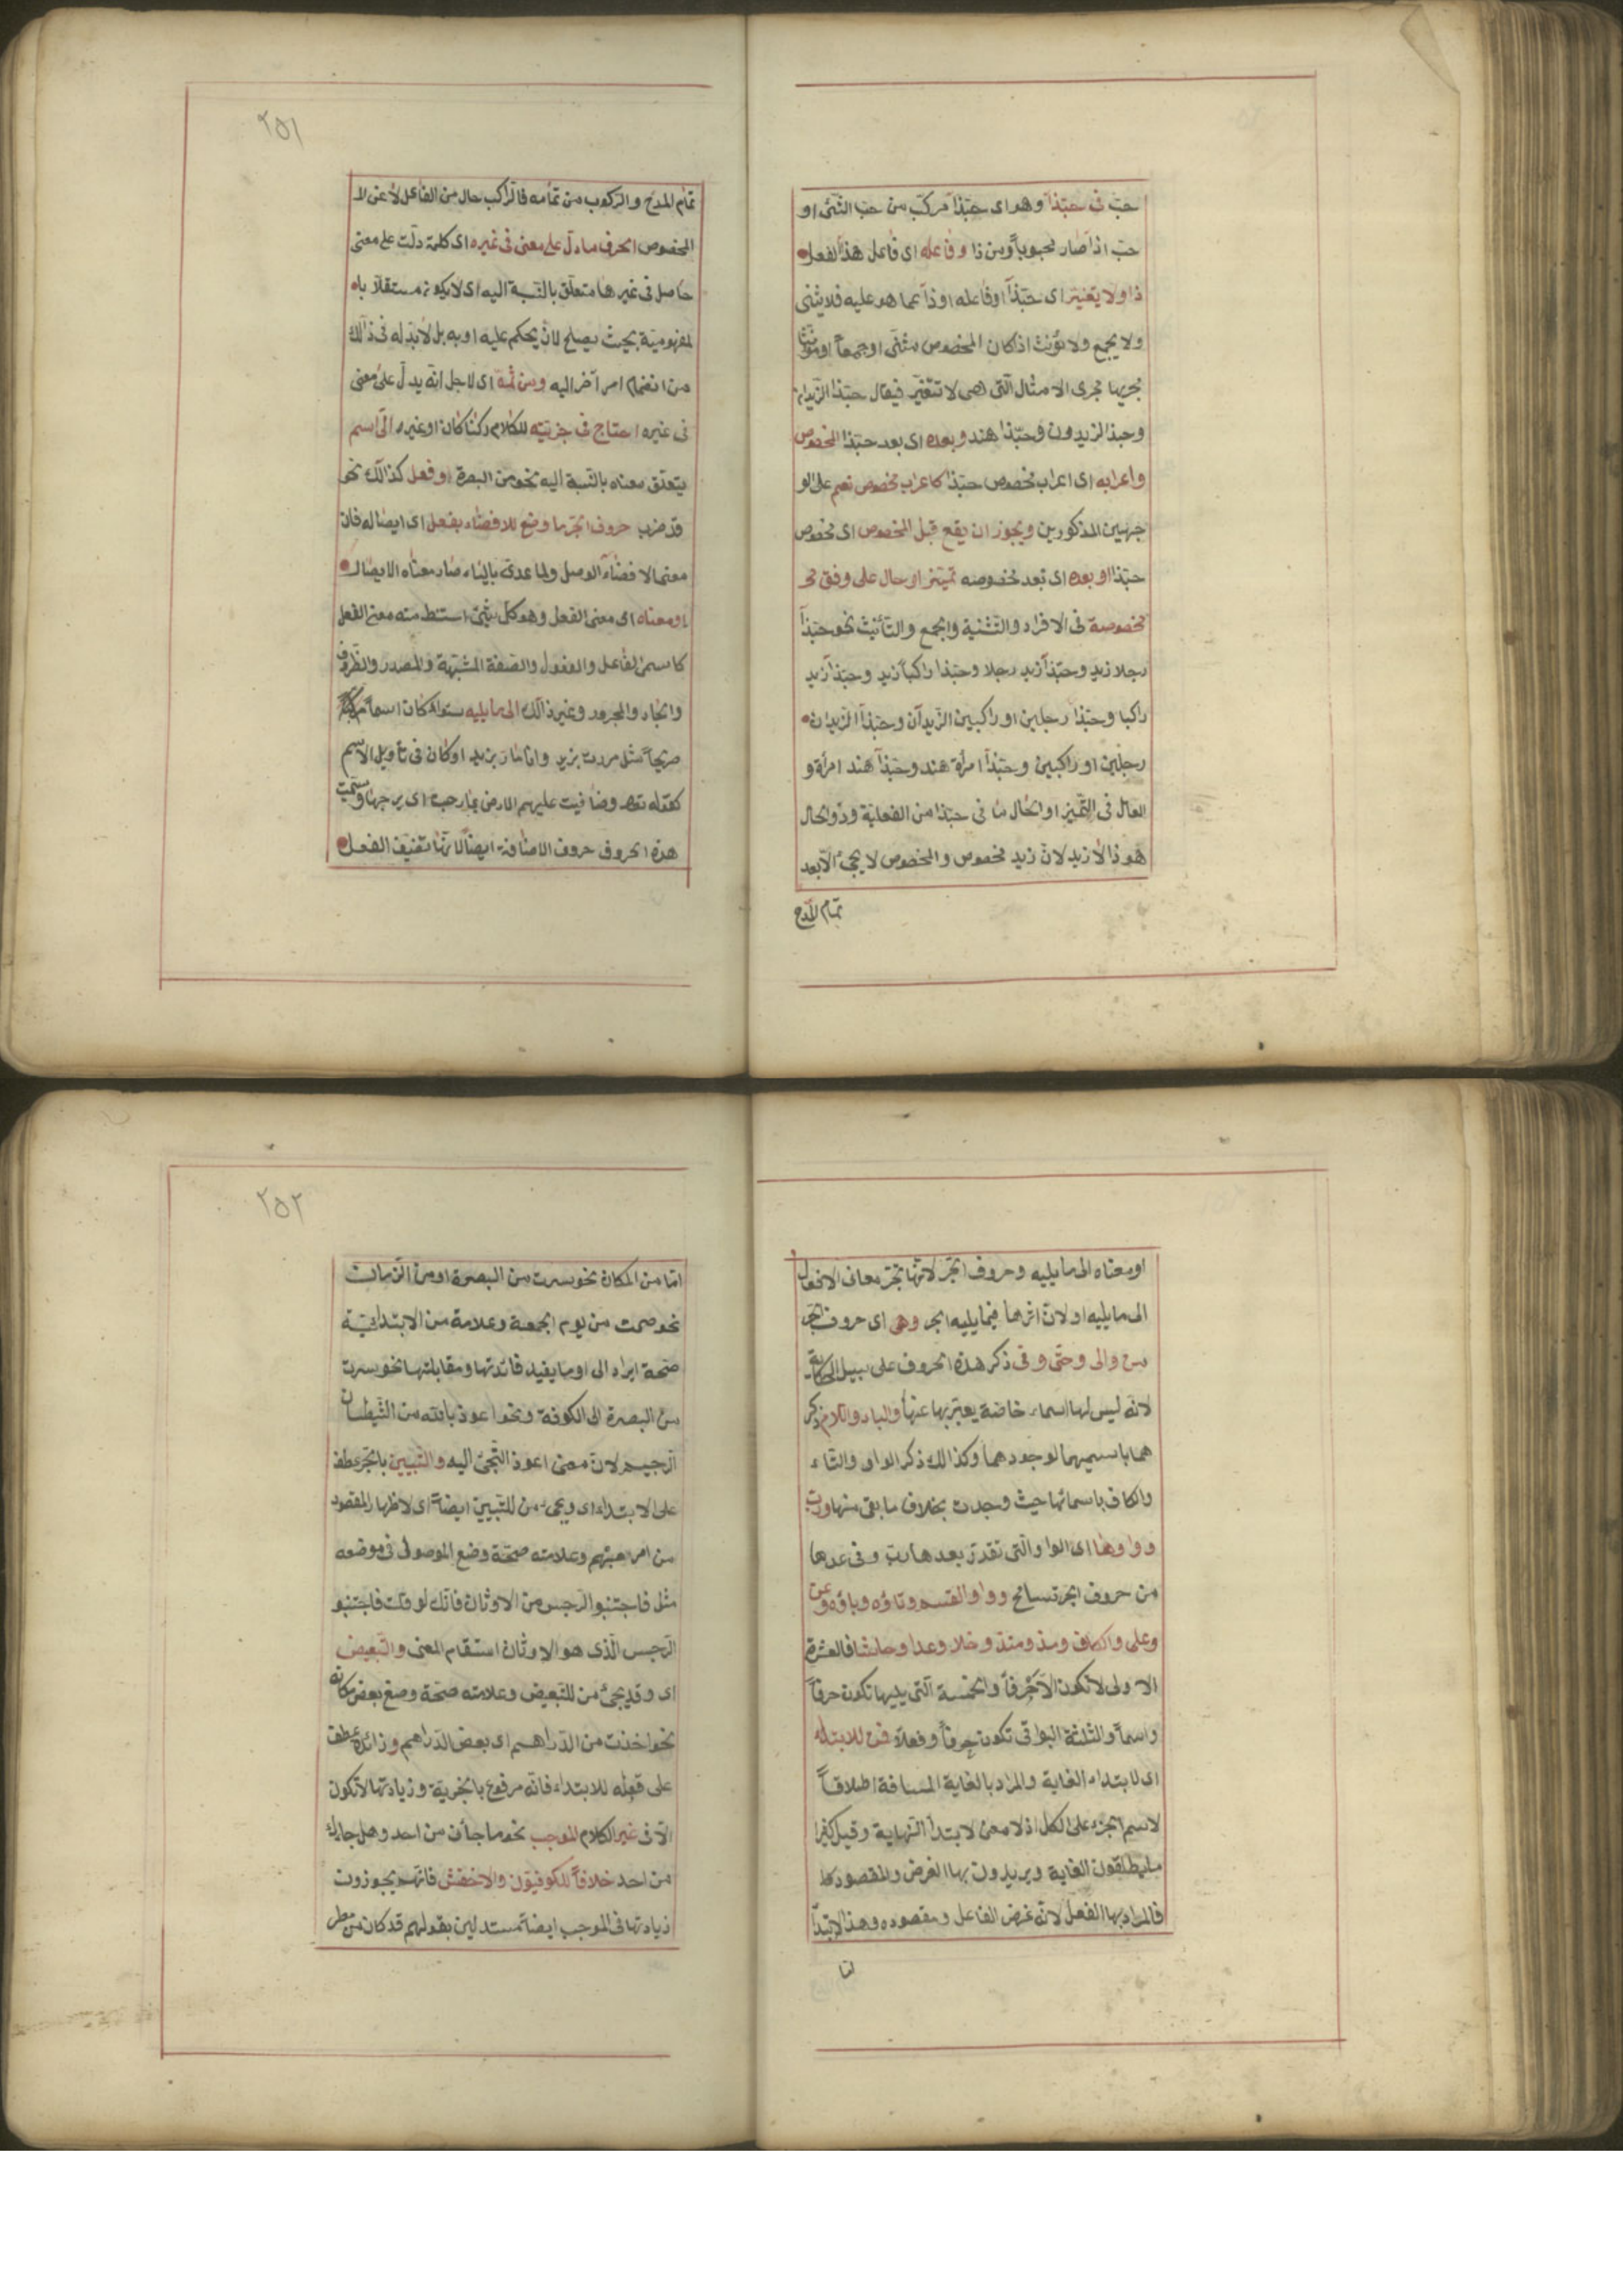 حبّ فى حبّذا وهو اى حبّذا مركّب من حبّ الشئ او
حبّ اذا صار محبوباً ومن ذا وفاعله اى فاعل هذا الفعل
ذا ولا يتغيّر اى حبّذا او فاعله او ذا عما هو عليه فلا يثنى
ولا يجمع ولا يؤنث اذا كان المخصوص مثنى او جمعاً او مؤنثا
لجريها مجرى الامثال الّتى هى لا تتغيّر فيقال حبّذا الزّيدان
وحبذا الزيدون وحبّذا هند وبعده اى بعد حبّذا المخصوص
واعرابه اى اعراب مخصوص حبّذا كاعراب مخصوص نعم على الو
جهين المذكورين ويجوز ان يقع قبل المخصوص اى مخصوص
حبّذا او بعده اى بعد مخصوصه تميّيز او حال على وفق مخ
مخصوصة فى الافراد والتّثنية والجمع والتّأنيث نحو حبّذا
رجلا زيد وحبّذا زيد رجلا وحبّذا راكباً زيد وحبّذا زيد
راكبا وحبّذا رجلين او راكبين الزّيدان وحبّذا الزّيدان
رجلين او راكبين وحبّذا امرأة هند وحبّذا هند امرأة و
العامل فى التّميز او الحال ما فى حبّذا من الفعلية وذو الحال
هو ذا لا زيد لانّ زيد مخصوص والمخصوص لا يجئ الّا بعد
تمام المدح
٢٥١
تمام المدح والرّكوب من تمامه فالرّاكب حال من الفاعل لا عن الـ
المخصوص الحرف ما دلّ على معنى فى غيره اى كلمة دلّت على معنى
حاصل فى غيرها متعلّق بالنّسبة اليه اى لا يكون مستقلّا بالـ
لمفهوميّة بحيث يصلح لان يحكم عليه او به بل لا بدّ له فى ذالك
من انضمام امر آخر اليه ومن ثمّة اى لاجل انّه يدلّ على معنى
فى غيره احتاج فى جزئيّته للكلام ركناً كان او غيره الى اسم
يتعلّق معناه بالنّسبة اليه نحو من البصرة او فعل كذالك نحو
قد ضرب حروف الجرّ ما وضع للافضاء بفعل اى ايصاله فان
معنى الافضاء الوصل ولما عدى بالباء صار معناه الايصال
او معناه اى معنى الفعل وهو كل شئ استنبط منه معنى الفعل
كاسمى الفاعل والمفعول والصّفة المشبّهة والمصدر والظّرف
والجار والمجرور وغير ذالك الى ما يليه سواء كان اسماً
صريحاً مثل مررت بزيد وانا مار بزيد او كان فى تأويل الاسم
كقوله تعا وضاقت عليهم الارض بما رحبت اى برحبها وسمّيت
هذه الحروف حروف الاضافة ايضاً لانّها تضيف الفعل
او معناه الى ما يليه وحروف الجرّ لانّها تجرّ معانى الافعال
الى ما يليه او لان اثرها فيما يليه الجر وهى اى حروف الجر
من والى وحتّى وفى ذكر هذه الحروف على سبيل الحكاية
لانّه ليس لها اسماء خاصّة يعبّر بها عنها والباء واللام ذكر
هما باسميهما لوجودهما وكذالك ذكر الواو والتّاء
والكاف باسمائها حيث وجدت بخلاف ما بقى منها وربّ
وواوها اى الواو الّتى تقدّر بعدها ربّ وفى عدها
من حروف الجر تسامح وواو القسم وتاؤه وباؤه وعن
وعلى والكاف ومذ ومنذ وخلا وعدا وحاشا فالعشرة
الاولى لا تكون الّا حرفاً والخمسة الّتى يليها تكون حرفاً
واسماً والثّلثة البواقى تكون حرفاً وفعلاً فمن للابتداء
اى لابتداء الغاية والمراد بالغاية المسافة اطلاقاً
لاسم الجزء على الكل اذ لا معنى لابتداء النّهاية وقيل كثيرا
ما يطلقون الغاية ويريدون بها الغرض والمقصود
فالمراد بها الفعل لانّه غرض الفاعل ومقصوده وهذا الابتدا
امّا
٢٥٢
امّا من المكان نحو سرت من البصرة او من الزّمان
نحو صمت من يوم الجمعة وعلامة من الابتدائيّة
صحّة ايراد الى او ما يفيد فائدتها ومقابلتها نحو سرت
من البصرة الى الكوفة ونحو اعوذ بالله من الشّيطان
الرّجيم لانّ معنى اعوذ التجئ اليه والتّبيين بالجرّ عطف
على الابتداء اى ويجئ من للتبيين ايضاً اى لاظهار المقصود
من امر مبهم وعلامته صحّة وضع الموصول فى موضعه
مثل فاجتنبوا الرّجس من الاوثان فانّك لو قلت فاجتنبو
الرّجس الّذى هو الاوثان استقام المعنى والتّبعيض
اى وقد يجئ من للتّبعيض وعلامته صحّة وضع بعض مكانه
نحو اخذت من الدّراهم اى بعض الدّراهم وزائدة عطف
على قوله للابتداء فانّه مرفوع بالخبريّة وزيادتها لا تكون
الّا فى غير الكلام الموجب نحو ما جاءنى من احد وهل جاءك
من احد خلافاً للكوفيّون والاخفش فانّهم يجوّزون
زيادتها فى الموجب ايضاً مستدلين بقولهم قد كان من مطر